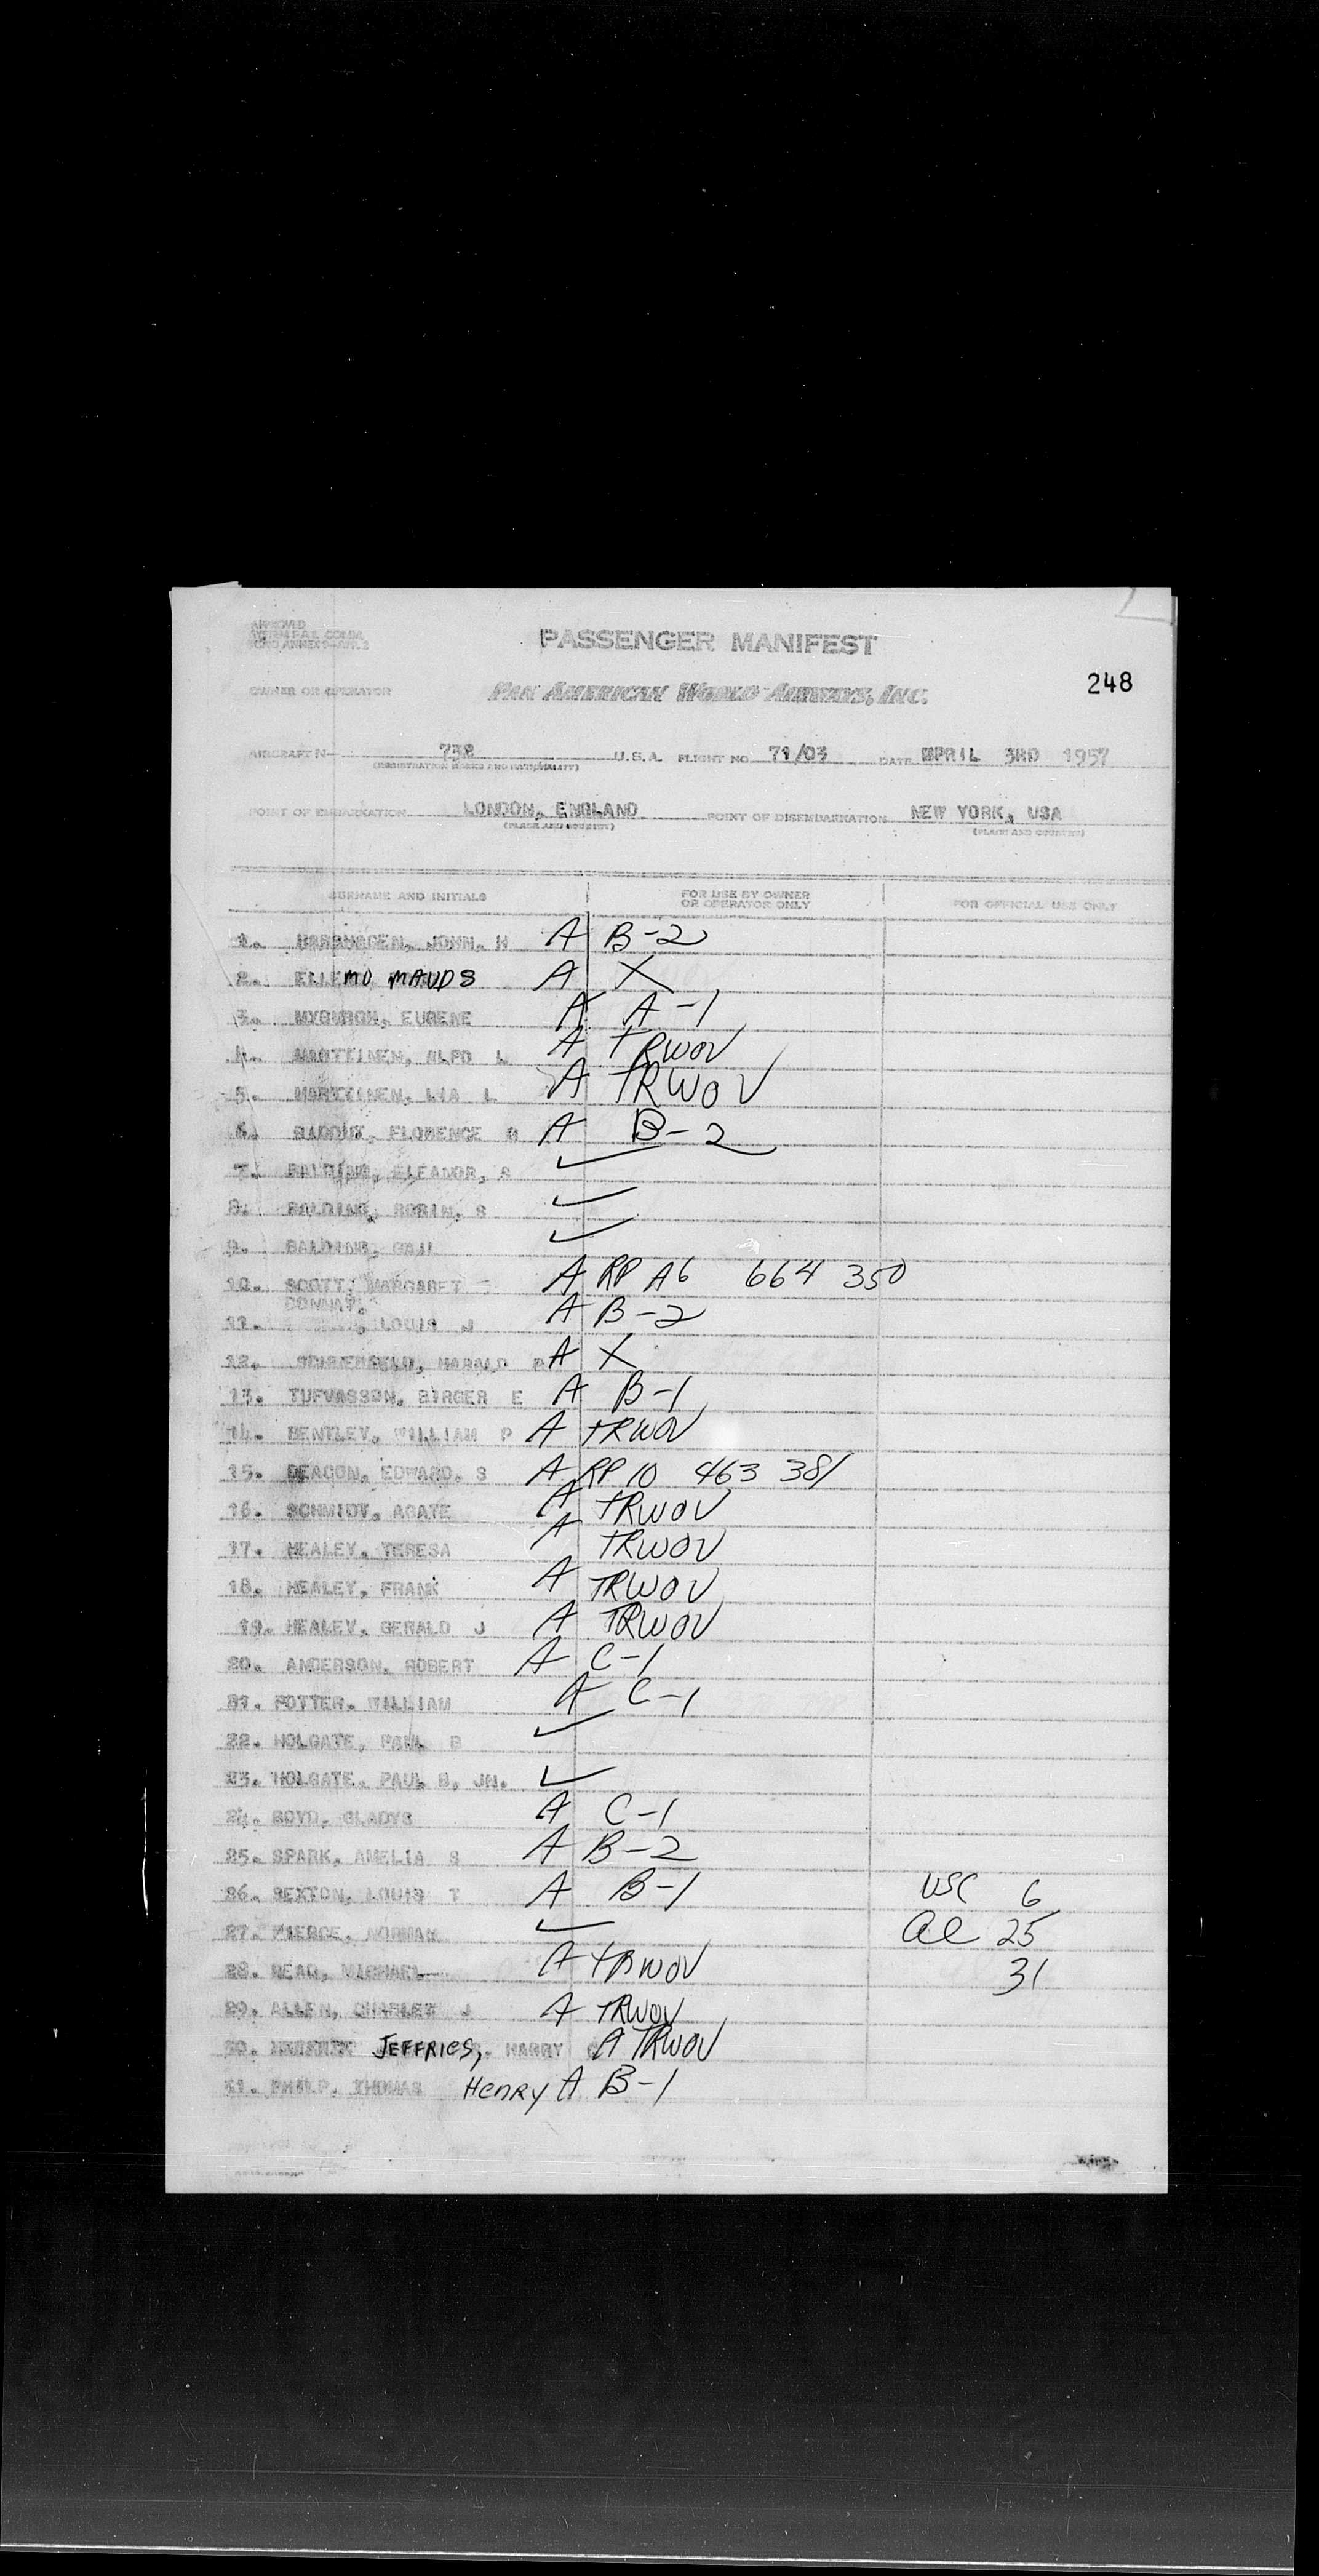 APPROVED
PASSENGER MANIFEST
248
OWNER OR OPERATOR PAN AMERICAN WORLD AIRWAYS, INC.
AIRCRAFT N— 738 U.S.A. FLIGHT NO 71/03 DATE APRIL 3RD 1957
(REGISTRATION MARKS AND NATIONALITY)
POINT OF EMBARKATION LONDON, ENGLAND POINT OF DISEMBARKATION NEW YORK, USA
(PLACE AND COUNTRY) (PLACE AND COUNTRY)
SURNAME AND INITIALS FOR USE BY OWNER OR OPERATOR ONLY FOR OFFICIAL USE ONLY
1. JOHN, H A B-2
2. A X
3. EUGENE A A-1
4. L A TRWOV
5. L A TRWOV
6. FLORENCE A B-2
7. BALDING, ELEANOR, S ✓
8. BALDING, ROBIN, S ✓
9. BALDING, GAIL ✓
10. SCOTT, MARGARET A RP A6 664 350
DONNAY,
11. LOUIS J A B-2
12. HARALD A X
13. TUFVASSON, BIRGER E A B-1
14. BENTLEY, WILLIAM P A TRWOV
15. DEACON, EDWARD, S A RP 10 463 381
16. SCHMIDT, AGATE A TRWOV
17. HEALEY, TERESA A TRWOV
18. HEALEY, FRANK A TRWOV
19. HEALEY, GERALD J A TRWOV
20. ANDERSON, ROBERT A C-1
21. POTTER, WILLIAM A C-1
22. HOLGATE, PAUL B ✓
23. HOLGATE, PAUL B, JN. ✓
24. BOYD, GLADYS A C-1
25. SPARK, AMELIA S A B-2
26. SEXTON, LOUIS T A B-1 USC 6
27. PIERCE, NORMAN ✓ al 25
28. READ, MICHAEL A TRWOV 31
29. ALLEN, CHARLES J A TRWOV
30. JEFFRIES, HARRY A TRWOV
31. THOMAS HENRY A B-1